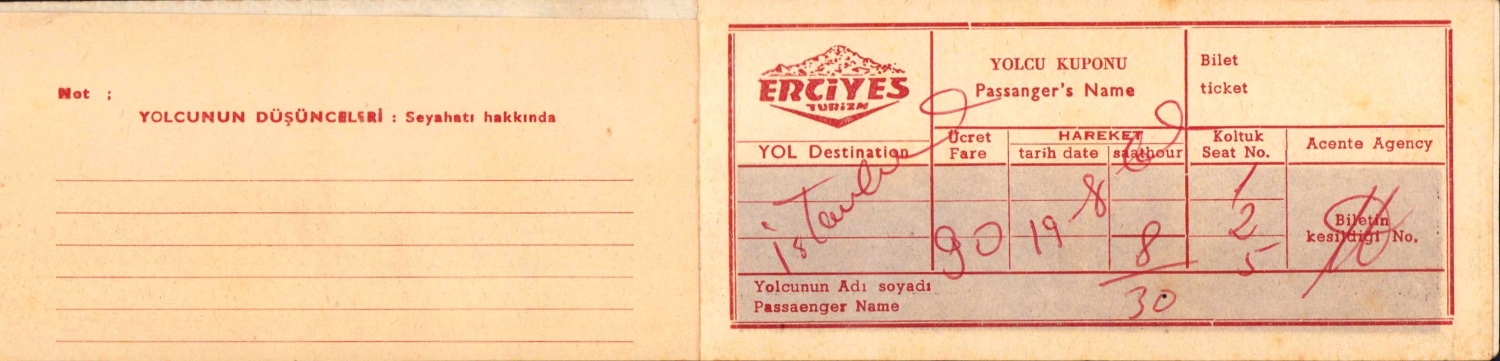 Not ;
YOLCUNUN DÜŞÜNCELERİ : Seyahatı hakkında
ERCİYES
TURİZM
YOLCU KUPONU
Passanger's Name
Bilet
ticket
YOL Destination
Ücret
Fare
HAREKET
tarih date
saathour
Koltuk
Seat No.
Acente Agency
İstanbul
90
19 8
8
30
1
2
5
Biletin
kesildiği No.
Yolcunun Adı soyadı
Passaenger Name